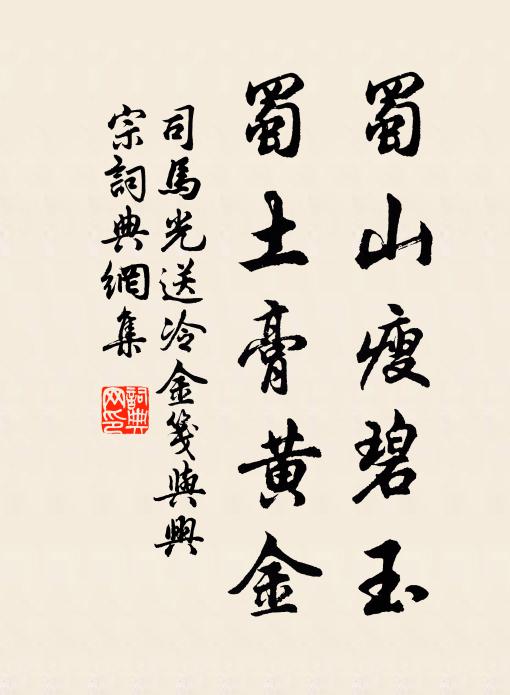 蜀山瘦碧玉
蜀土膏黄金
司馬光送冷金箋與興
宗詞典網集
詞典
网印